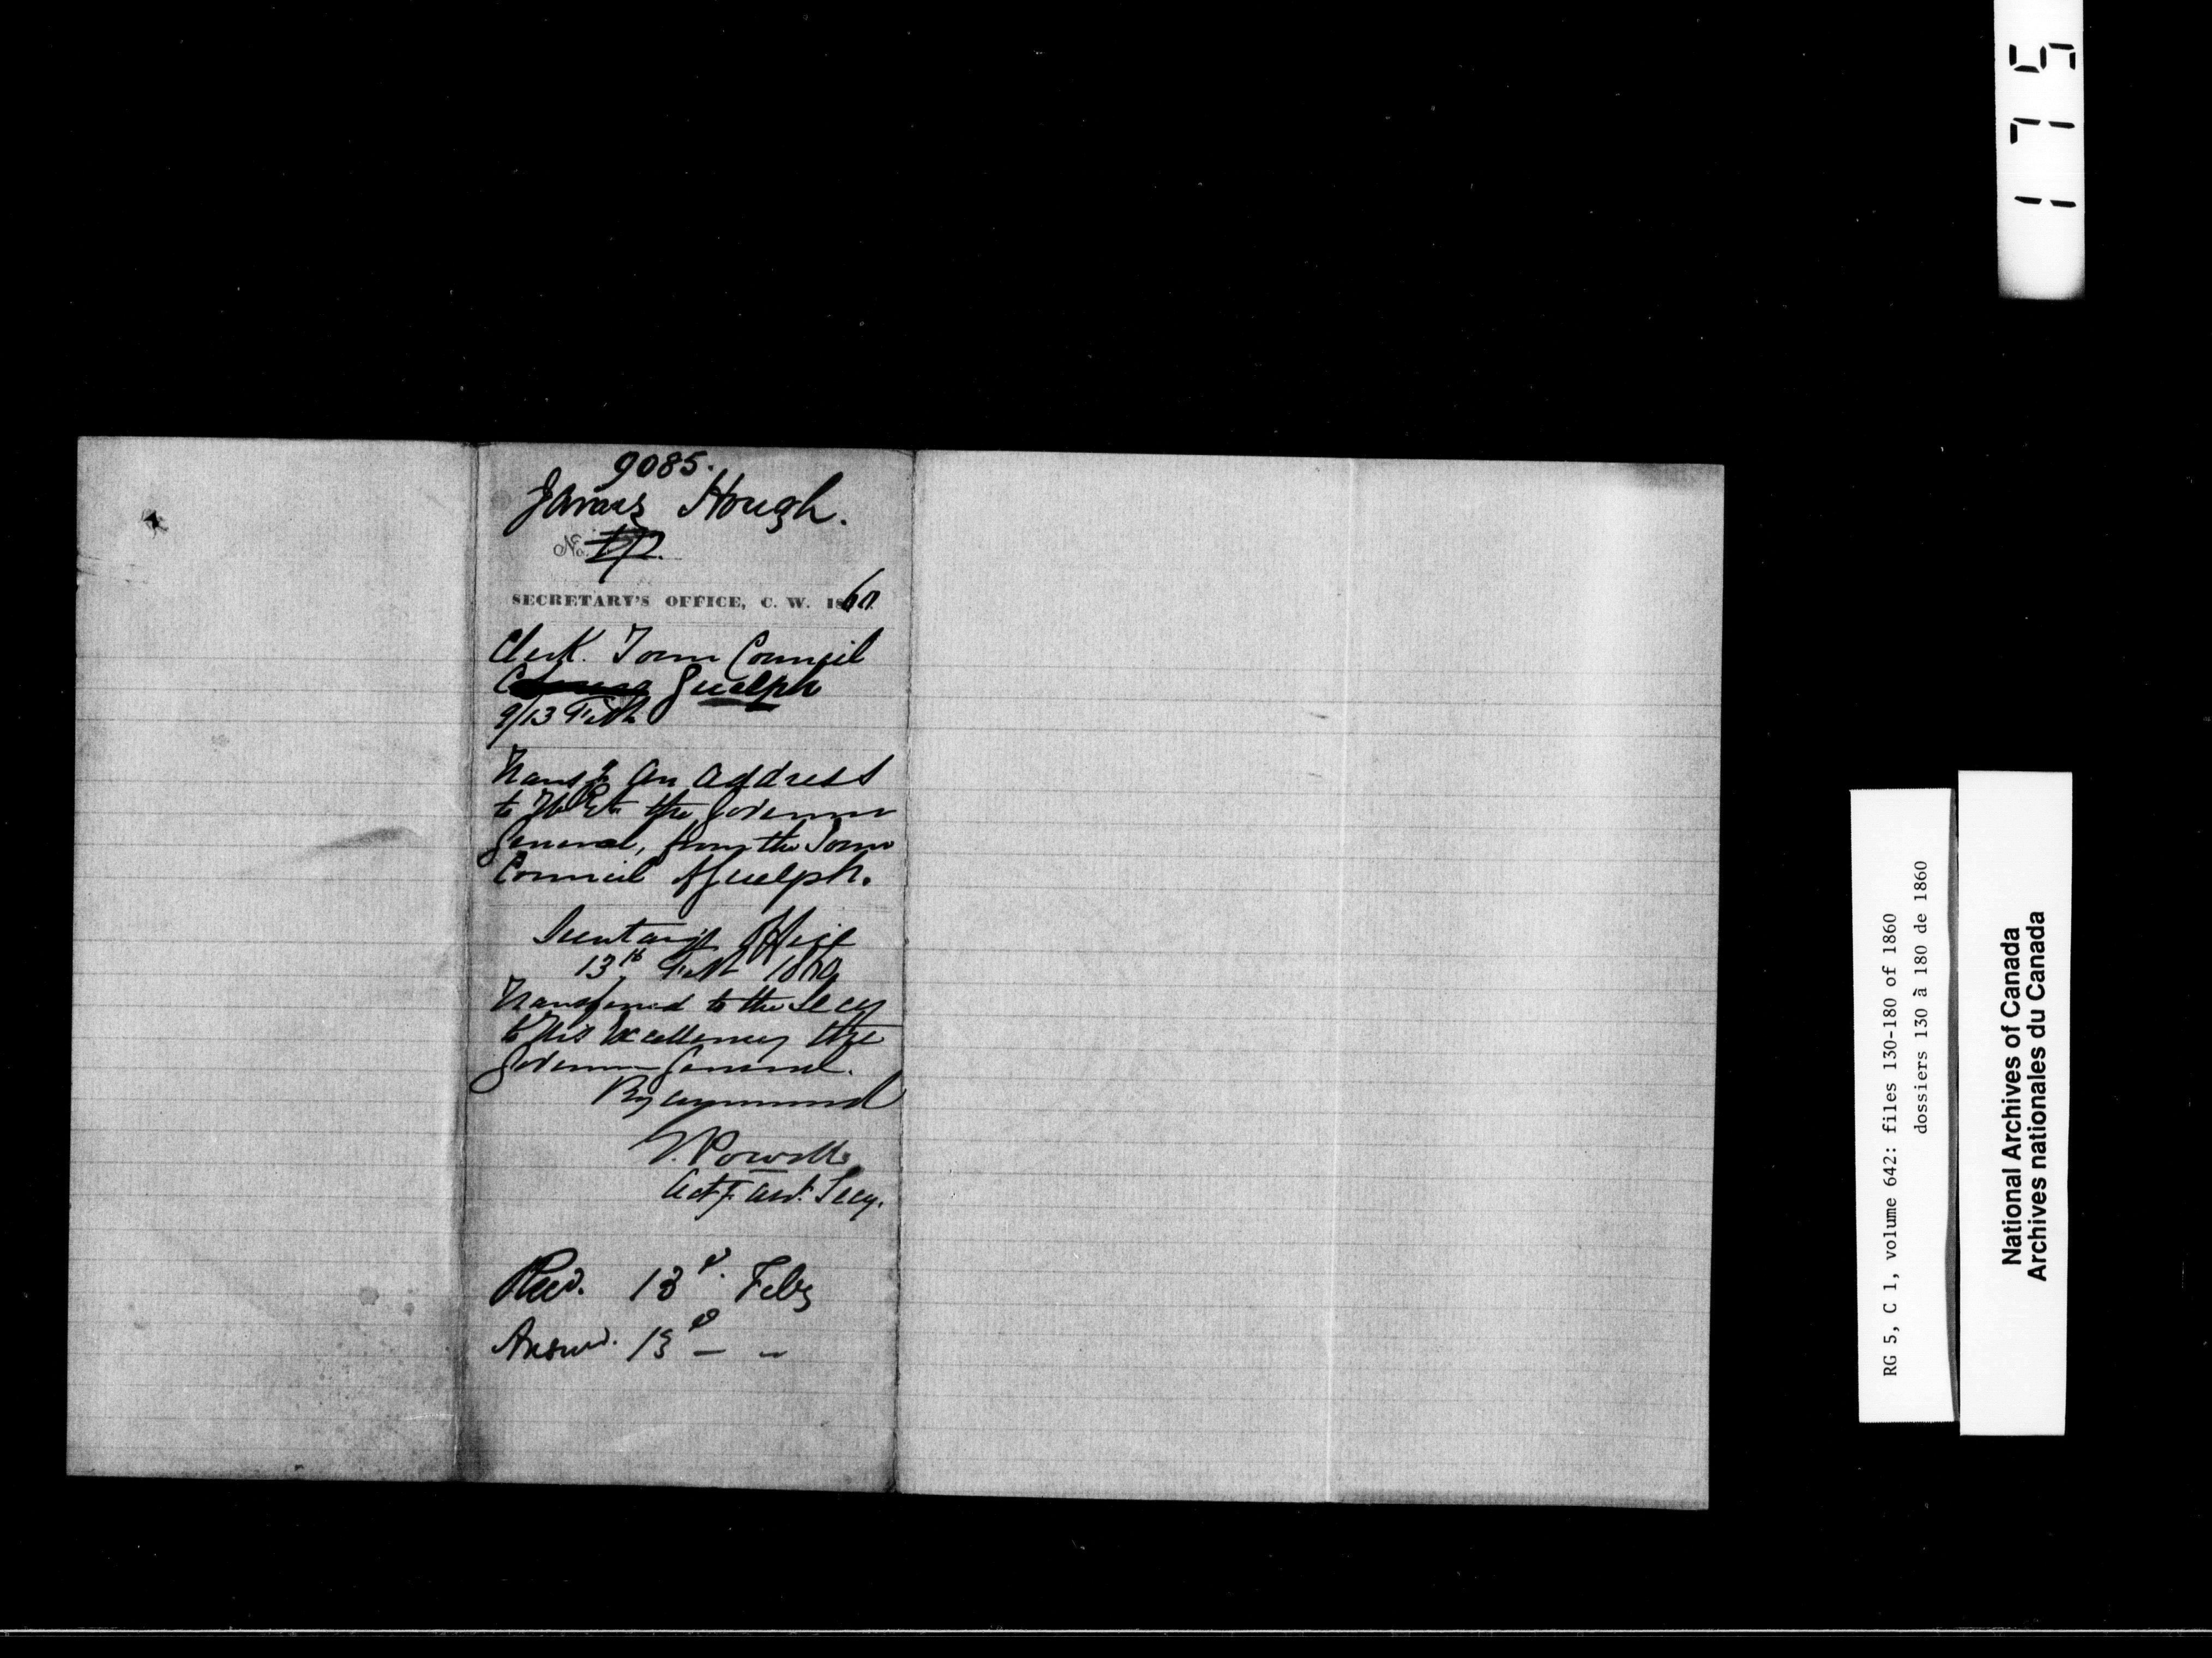 9085.
James Hough.
No.
SECRETARY'S OFFICE, C. W. 1860
Clerk. Town Council
Guelph
9/13 Feb
Transg. An Address
to His Ex. the Governor
General, from the Town
Council of Guelph.
Secretary's Office
13th Feb 1860
Transferred to the Secy
to His Excellency the
Governor General.
By command
G. Powell
Actg. Asst. Secy.
Recd. 13th. Feby
Answd. 13th — —
175
RG 5, C 1, volume 642: files 130-180 of 1860
dossiers 130 à 180 de 1860
National Archives of Canada
Archives nationales du Canada